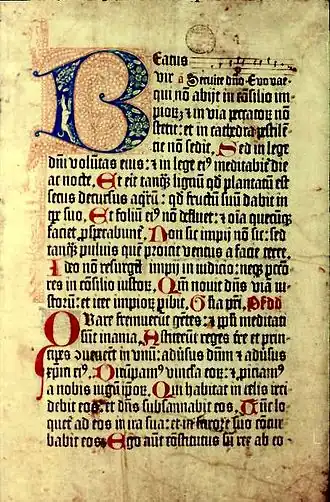 Beatus
vir ā Seruite dn̄o. Evovae
qui nō abijt in cōsilio im
pioꝝ ⁊ in via pccatoꝝ nō
stetit: et in cathedra pestilē
tie nō sedit. Sed in lege
dn̄i volūtas eius: ⁊ in lege eiꝰ meditabit̄ die
ac nocte. Et erit tanqȝ lignū qd̄ plantatū est
secus decursus aqrū: qd̄ fructū suū dabit in
tpe suo. Et foliū eiꝰ nō defluet: ⁊ oīa quecūqȝ
faciet ꝓsperabunt̄. Non sic impij nō sic: sed
tanqȝ puluis quē proicit ventus a facie terre.
Ideo nō resurgēt impij in iudicio: neqȝ pctō
res in cōsilio iustoꝝ. Qm̄ nouit dn̄s viā iu
storū: et iter impioꝝ ꝑibit. Glīa pr̄i.
Quare fremuerūt gētes: ⁊ ppl̄i meditati
sūt inania. Astiterūt reges tre et prin
cipes ꝯuenerūt in vnū: adūsus dn̄m ⁊ adūsus
xp̄m eiꝰ. Dirūpamꝰ vincla eoꝝ: ⁊ ꝓiciamꝰ
a nobis iugū ip̄oꝝ. Qui habitat in celis irri
debit eos: et dn̄s subsannabit eos. Tūc lo
quet̄ ad eos in ira sua: et in furore suo cōtur
babit eos. Ego aūt cōstitutus sū rex ab eo